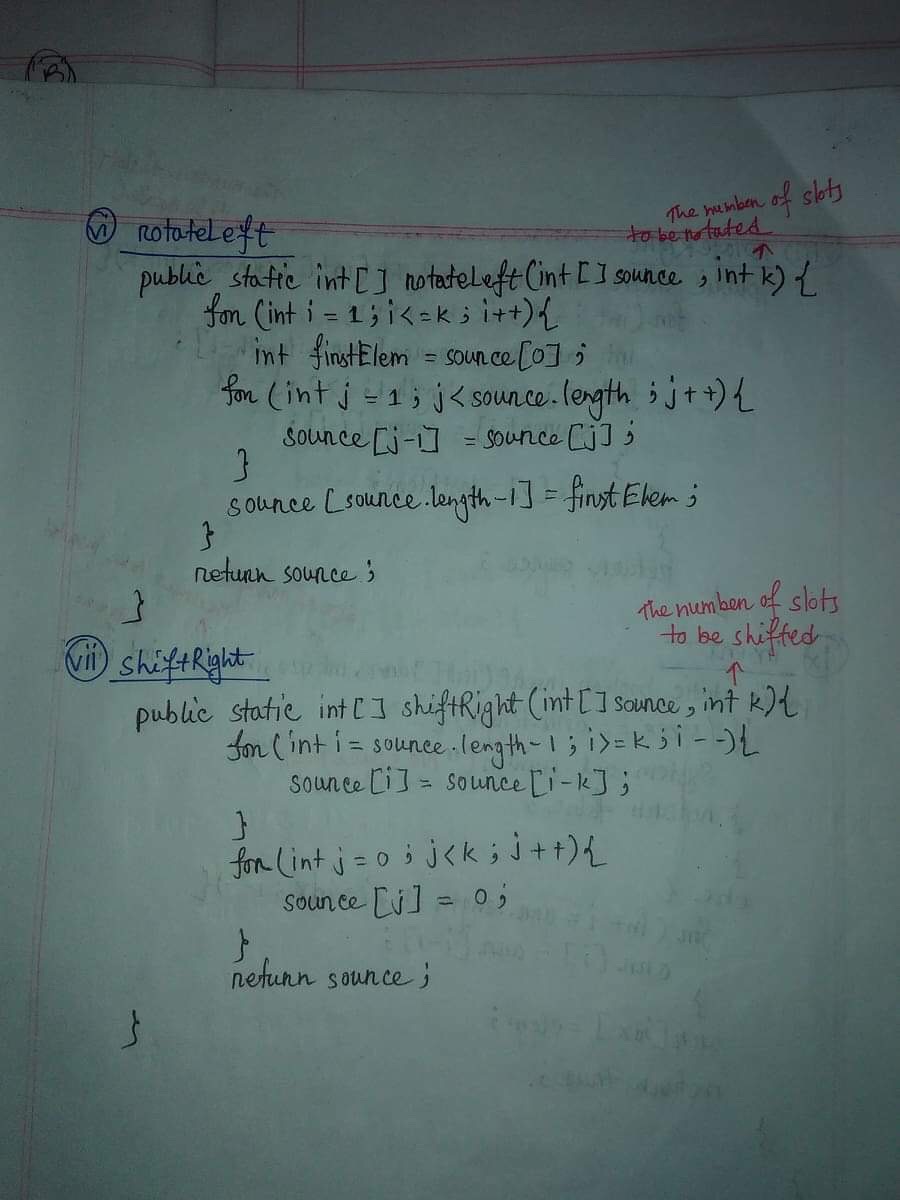 B
The number of slots
to be rotated
vi rotateLeft
public static int[] rotateLeft(int[] source, int k){
for (int i = 1; i<=k; i++){
int firstElem = source[0];
for (int j = 1; j<source.length; j++){
source[j-1] = source[j];
}
source[source.length-1] = firstElem;
}
return source;
}
The number of slots
to be shifted
vii shiftRight
public static int[] shiftRight(int[] source, int k){
for (int i = source.length-1; i>=k; i--){
source[i] = source[i-k];
}
for (int j = 0; j<k; j++){
source[j] = 0;
}
return source;
}